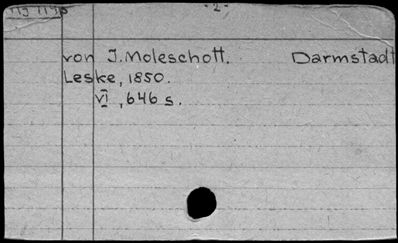 -2-
von J. Moleschott. Darmstadt
Leske, 1850.
VI, 646 s.